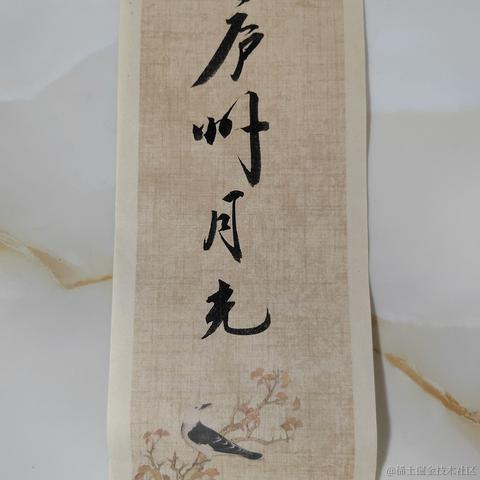 庐州月光
@稀土掘金技术社区